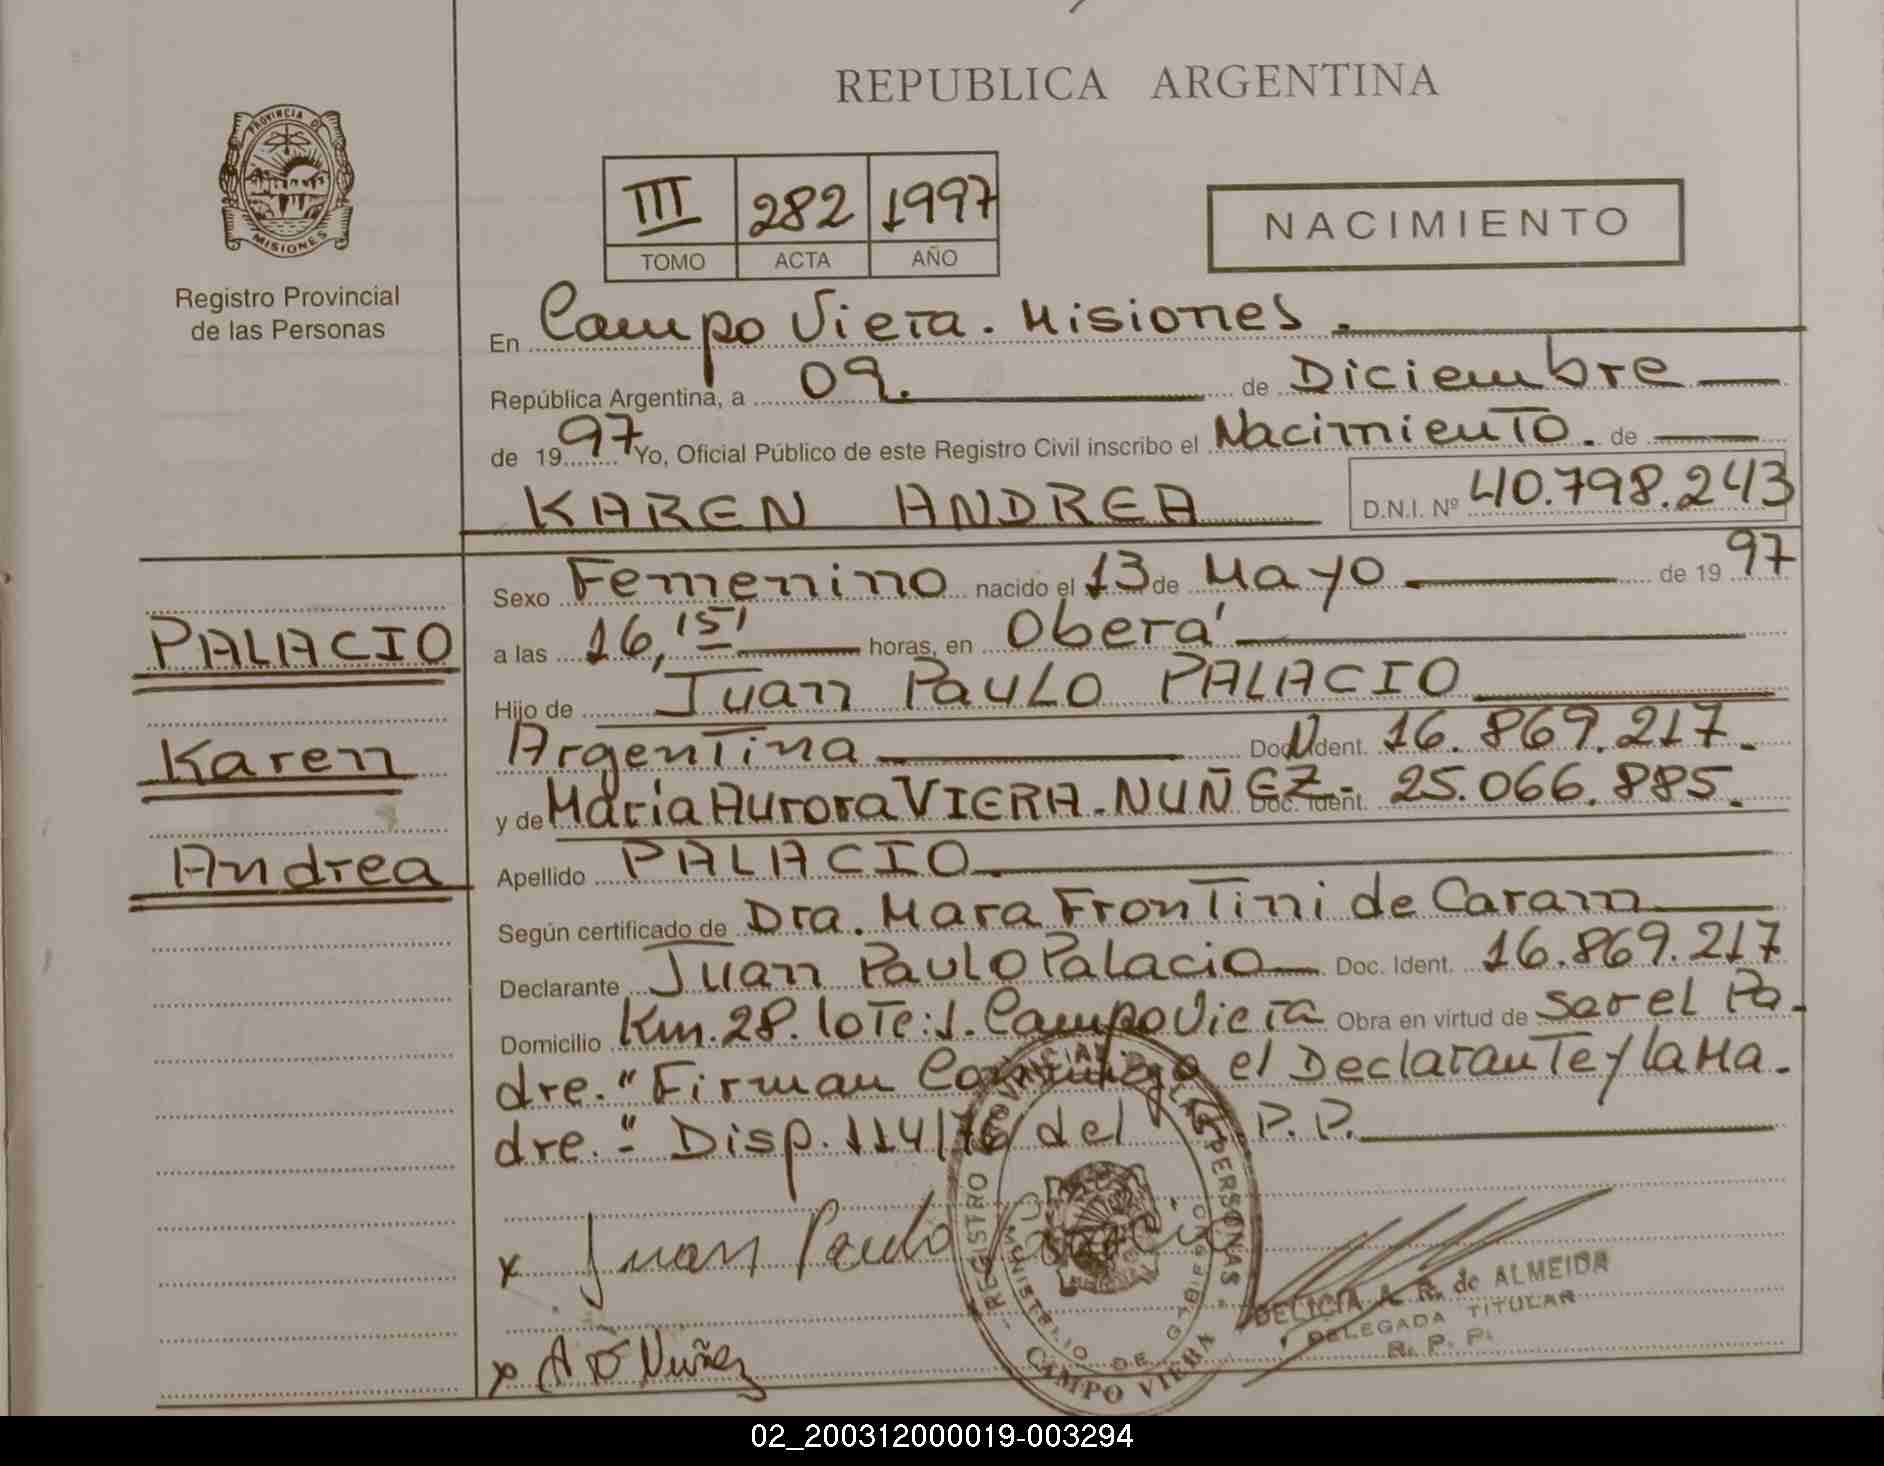 REPUBLICA ARGENTINA
PROVINCIA DE
MISIONES
Registro Provincial
de las Personas
III 282 1997
TOMO ACTA AÑO
NACIMIENTO
En Campo Viera. Misiones.
República Argentina, a 09. de Diciembre
de 1997 Yo, Oficial Público de este Registro Civil inscribo el Nacimiento. de
KAREN ANDREA D.N.I. Nº 40.798.243
PALACIO
Karen
Andrea
Sexo Femenino nacido el 13 de Mayo de 1997
a las 16,15' horas, en Oberá
Hijo de Juan Paulo PALACIO
Argentina Doc. Ident. 16.869.217.
y de María Aurora VIERA.NUÑEZ.- Doc. Ident. 25.066.885.
Apellido PALACIO
Según certificado de Dra. Mara Frontini de Caram
Declarante Juan Paulo Palacio Doc. Ident. 16.869.217
Domicilio Km.28. lote:1. Campo Viera Obra en virtud de ser el Pa-
dre." Firman Conmigo el Declarante y la Ma-
dre.- Disp.114/76 del R.P.P.
x Juan Paulo
REGISTRO PROVINCIAL DE LAS PERSONAS
MINISTERIO DE GOBIERNO
CAMPO VIERA
DELICIA A. R. de ALMEIDA
DELEGADA TITULAR
R. P. P.
x A V Nuñez
02_200312000019-003294